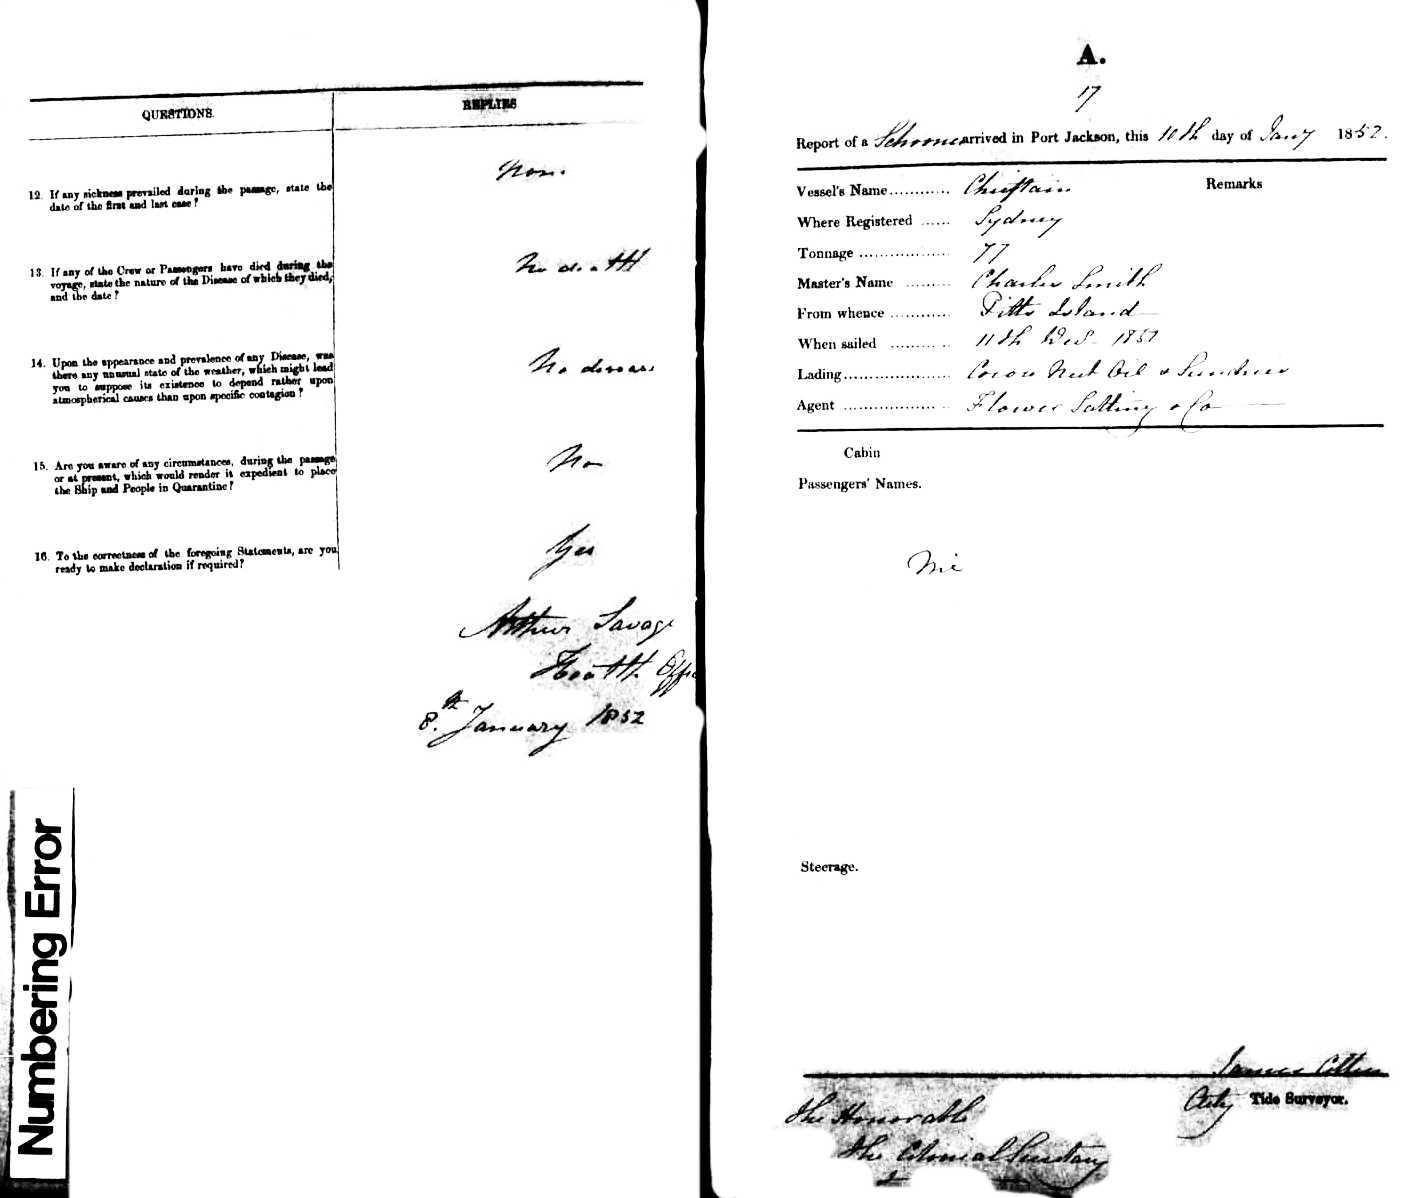 QUESTIONS.
REPLIES
12. If any sickness prevailed during the passage, state the
date of the first and last case?
None
13. If any of the Crew or Passengers have died during the
voyage, state the nature of the Disease of which they died,
and the date?
No death
14. Upon the appearance and prevalence of any Disease, was
there any unusual state of the weather, which might lead
you to suppose its existence to depend rather upon
atmospherical causes than upon specific contagion?
No disease
15. Are you aware of any circumstances, during the passage
or at present, which would render it expedient to place
the Ship and People in Quarantine?
No
16. To the correctness of the foregoing Statements, are you
ready to make declaration if required?
Yes
Arthur Savage
Health Offi
8th January 1852
Numbering Error
A.
17
Report of a Schooner arrived in Port Jackson, this 10th day of Jany 1852.
Vessel's Name............ Chieftain
Remarks
Where Registered ...... Sydney
Tonnage .................. 77
Master's Name ......... Charles Smith
From whence ............ Pitts Island
When sailed ............ 11th 1851
Lading...................... Cocoa Nut Oil & Sundries
Agent ..................... Flower Salting & Co
Cabin
Passengers' Names.
Nil
Steerage.
James Cotter
Actg Tide Surveyor.
The Honorable
The Colonial Secretary